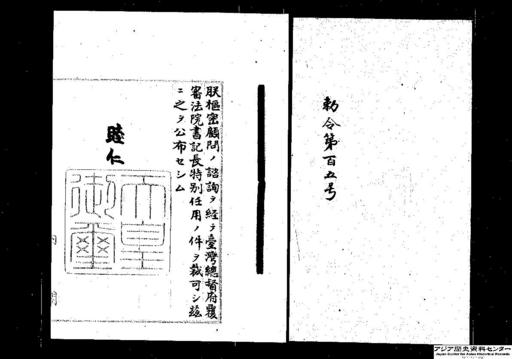 勅令第百五号
朕樞密顧問ノ諮詢ヲ経テ臺灣總督府覆
審法院書記長特別任用ノ件ヲ裁可シ玆
ニ之ヲ公布セシム
睦仁
天皇
御璽
アジア歴史資料センター
Japan Center for Asian Historical Records